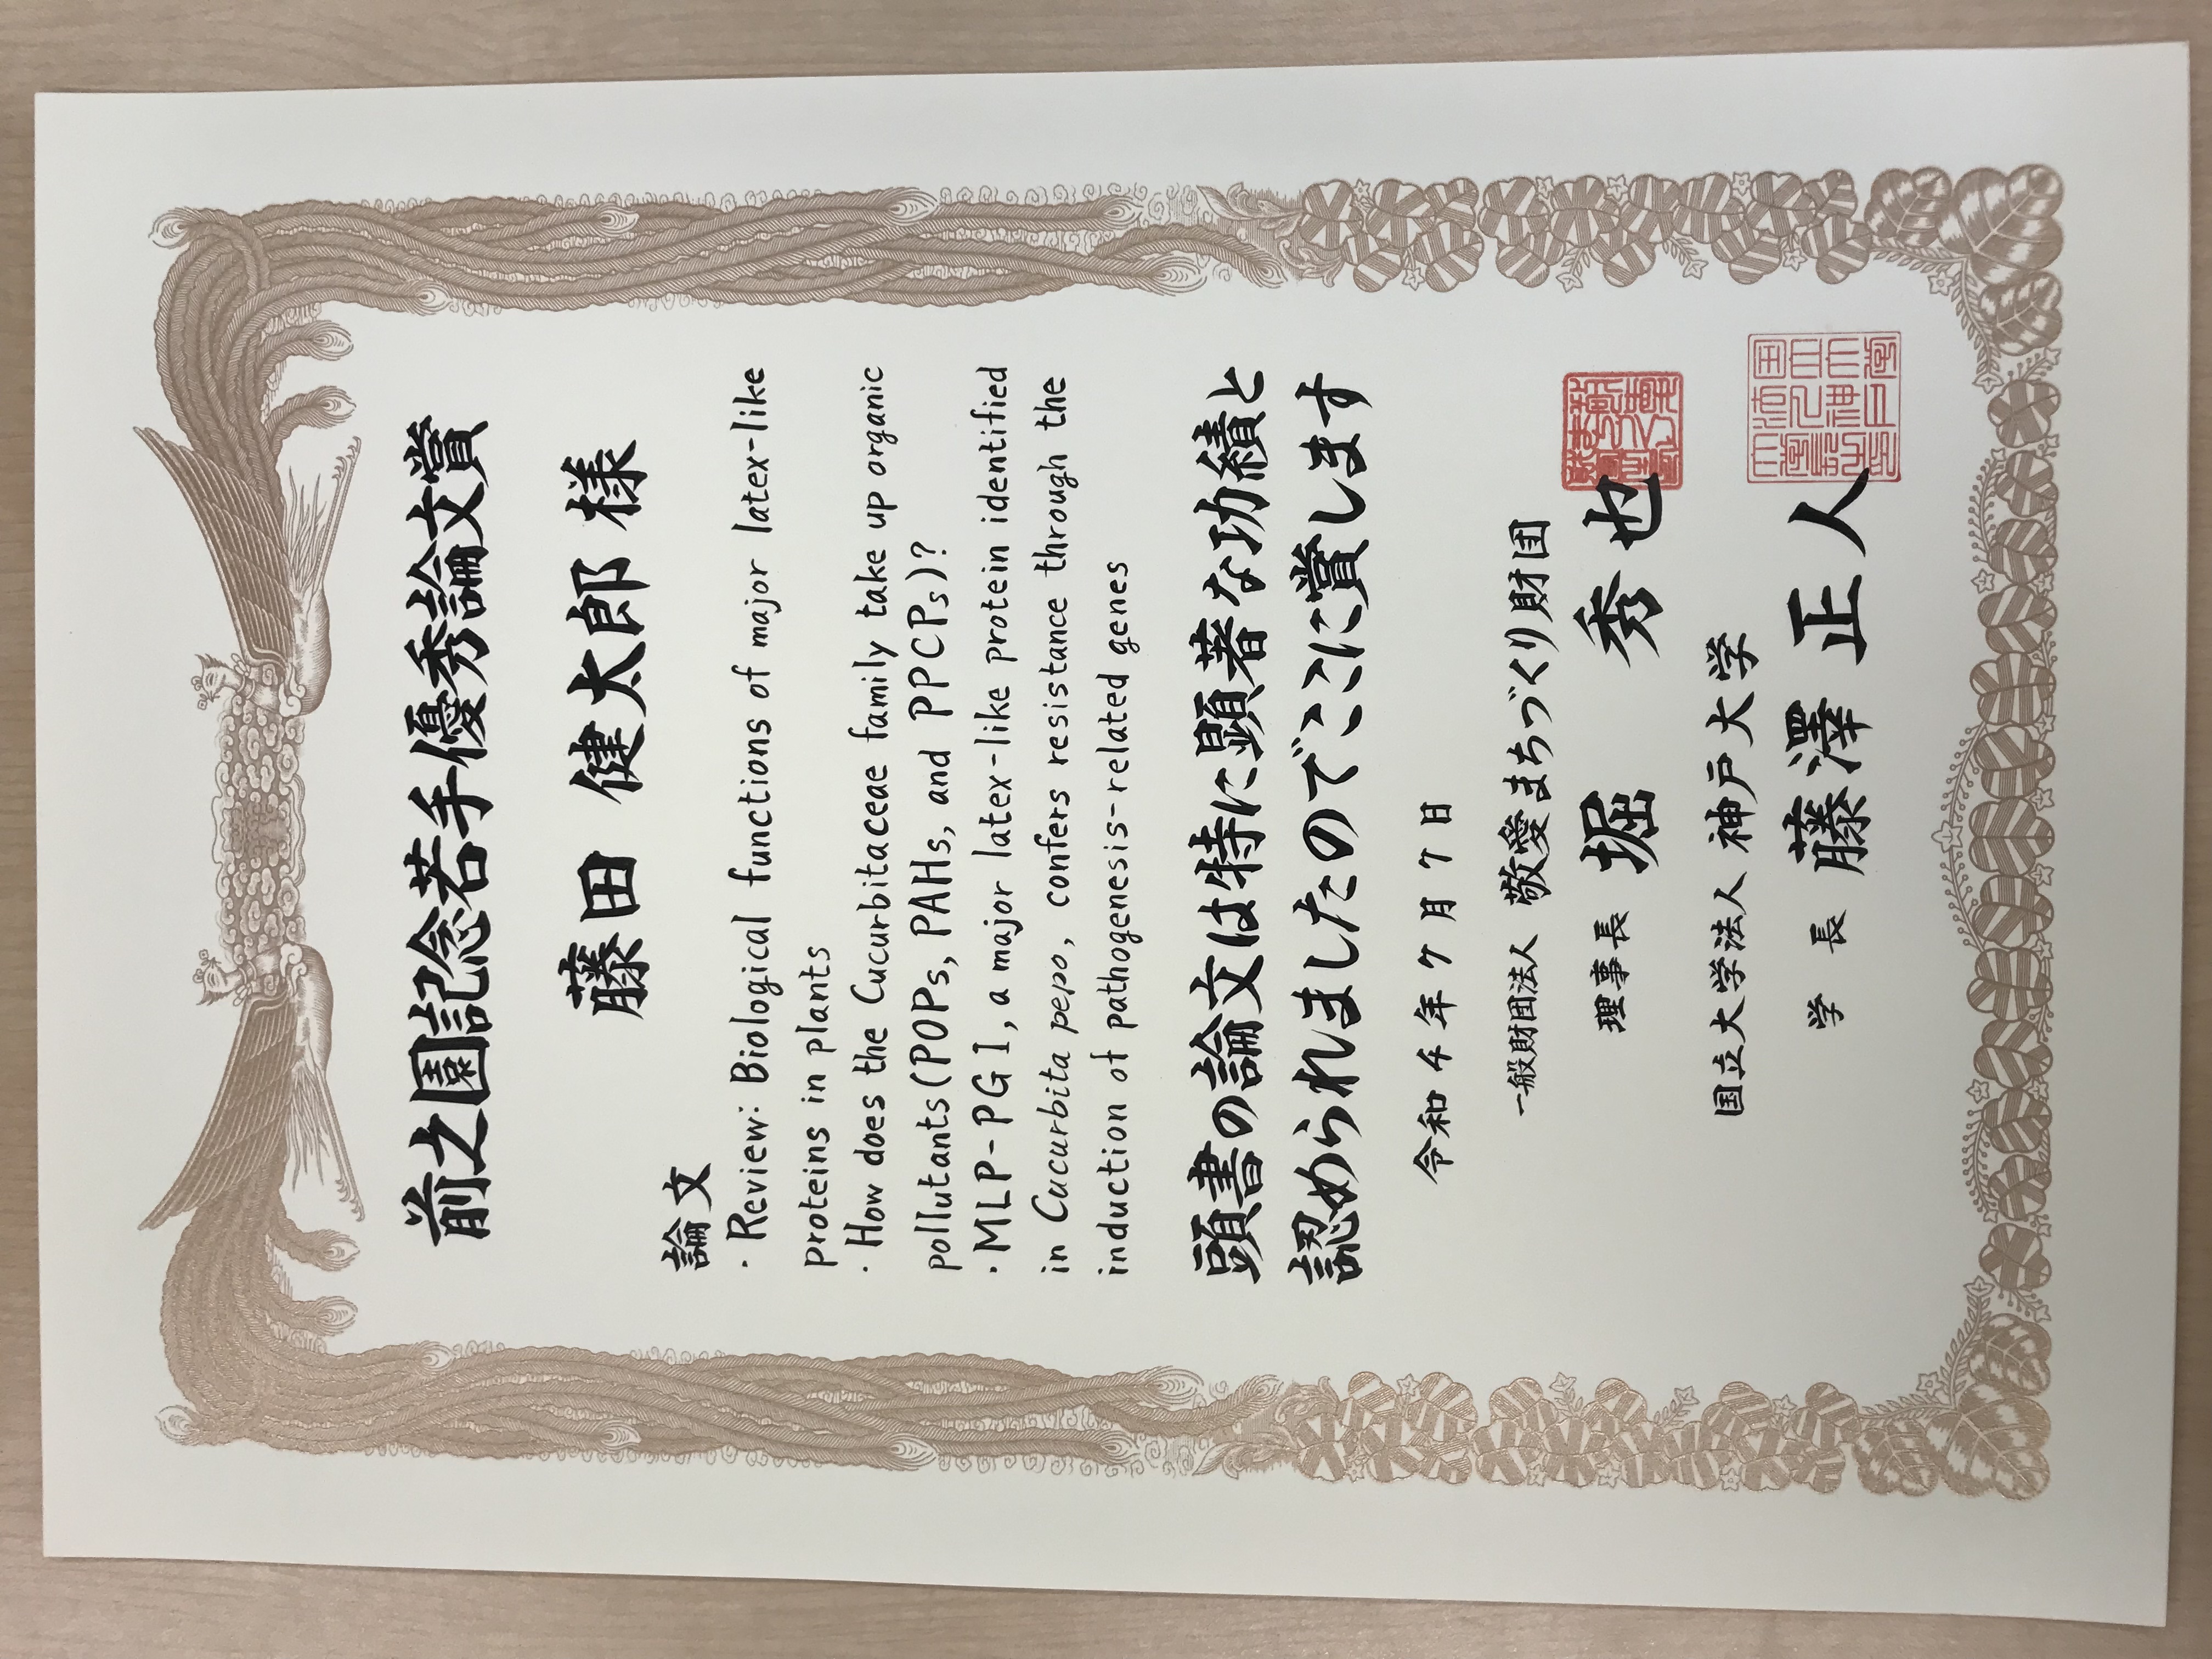 前之園記念若手優秀論文賞
藤田 健太郎 様
論文
・Review: Biological functions of major latex-like
proteins in plants
・How does the Cucurbitaceae family take up organic
pollutants (POPs, PAHs, and PPCPs)?
・MLP-PG1, a major latex-like protein identified
in Cucurbita pepo, confers resistance through the
induction of pathogenesis-related genes
頭書の論文は特に顕著な功績と
認められましたのでここに賞します
令和4年7月7日
一般財団法人 敬愛まちづくり財団
理事長 堀 秀也
国立大学法人 神戸大学
学長 藤澤 正人